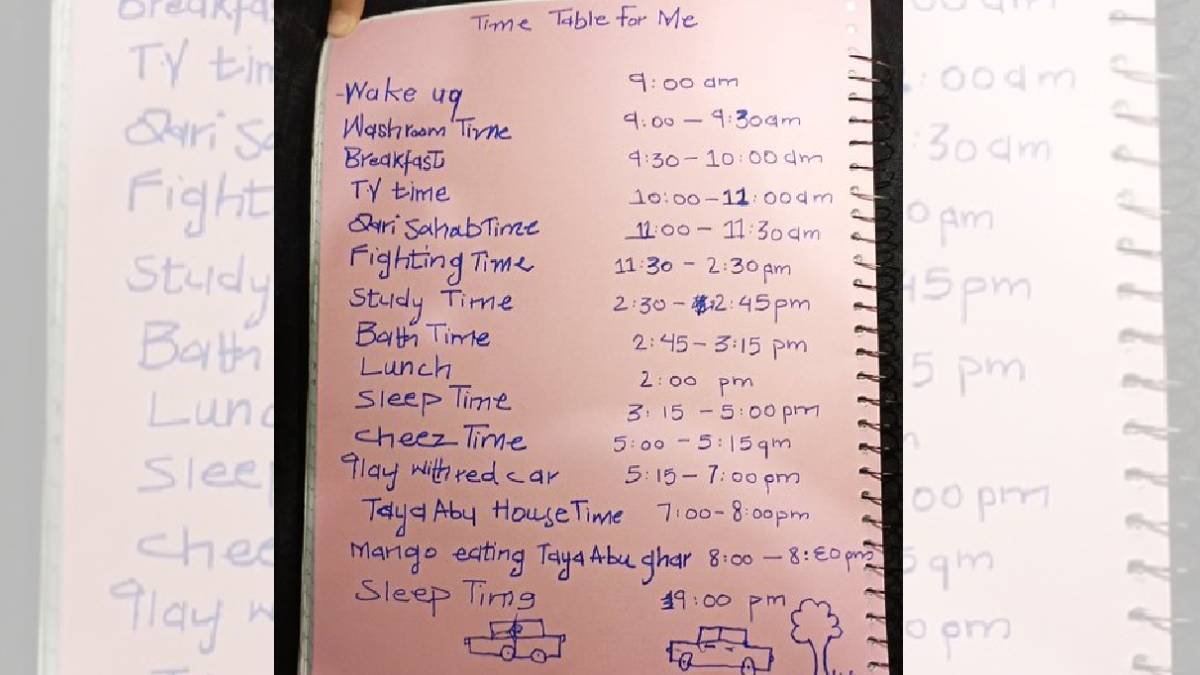 Time Table for Me
-Wake uq 9:00 am
Washroom Time 9:00 - 9:30am
Breakfast 9:30 - 10:00 am
TV time 10:00 - 11:00am
Qari Sahab Time 11:00 - 11:30am
Fighting Time 11:30 - 2:30pm
Study Time 2:30 - 2:45pm
Bath Time 2:45 - 3:15 pm
Lunch 2:00 pm
Sleep Time 3:15 - 5:00pm
cheez Time 5:00 - 5:15qm
qlay with red car 5:15 - 7:00pm
Taya Abu House Time 7:00 - 8:00pm
Mango eating Taya Abu ghar 8:00 - 8:30pm
Sleep Time 9:00 pm